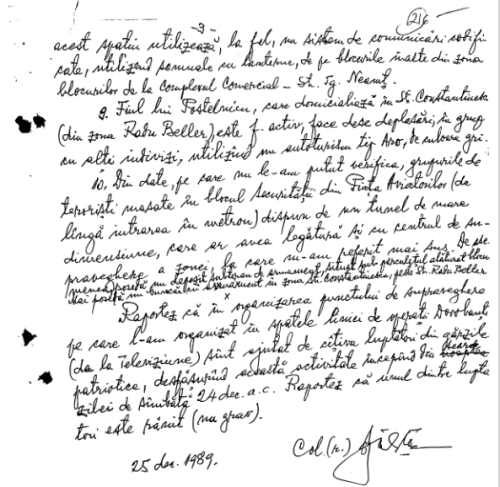 - 9 -
216
acest spațiu utilizează, la fel, un sistem de comunicări codifi
cate, utilizînd semnale cu lanterne, de pe blocurile înalte din zona
blocurilor de la complexul Comercial - St. Tg. Neamț.
9. Fiul lui Postelnicu, care domiciliază în St. Constantinescu
(din zona Radu Beller) este f. activ, face dese deplasări, în grup
cu alți indivizi, utilizînd un autoturism tip Aro, de culoare gri.
10. Din date, pe care nu le-am putut verifica, grupurile de
teroriști masate în blocul Securității din Piața Aviatorilor (de
lîngă intrarea în metrou) dispun de un tunel de mare
dimensiune, care ar avea legătură și cu centrul de su-
praveghere a zonei, la care m-am referit mai sus. De ase
menea, posedă un depozit subteran de armament, situat sub
Mai posedă un armament în zona St. Constantinescu, Radu Beller
Raportez că în organizarea punctului de supraveghere
pe care l-am organizat în spatele liniei de operații Dorobanți
(da la Televiziune) sînt ajutat de cîțiva luptători din gărzile
patriotice, desfășurînd această activitate începînd din seara
zilei de sîmbătă 24 dec. a.c. Raportez că unul dintre luptă
tori este rănit (nu grav).
25 dec. 1989.
Col. (r.)